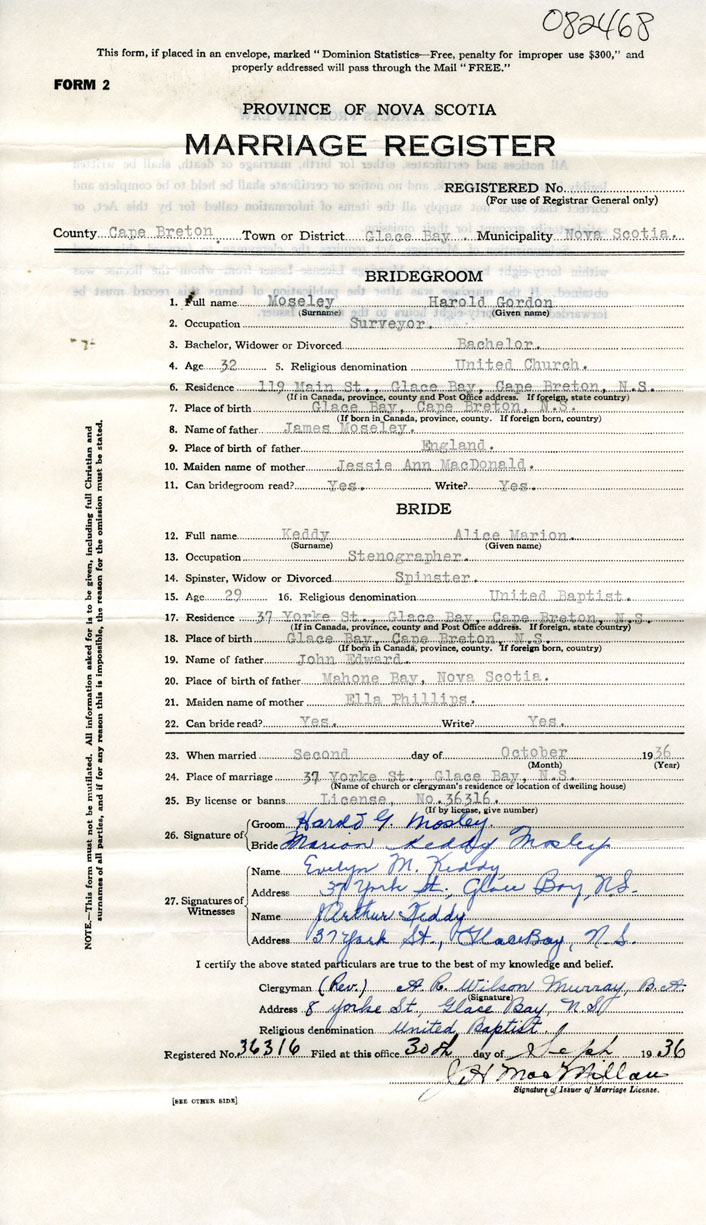 082468
This form, if placed in an envelope, marked "Dominion Statistics—Free, penalty for improper use $300," and
properly addressed will pass through the Mail "FREE."
FORM 2
PROVINCE OF NOVA SCOTIA
MARRIAGE REGISTER
REGISTERED No.
(For use of Registrar General only)
County Cape Breton Town or District Glace Bay Municipality Nova Scotia.
BRIDEGROOM
1. Full name Moseley Harold Gordon
(Surname) (Given name)
2. Occupation Surveyor.
3. Bachelor, Widower or Divorced Bachelor.
4. Age 32 5. Religious denomination United Church.
6. Residence 119 Main St., Glace Bay, Cape Breton, N.S.
(If in Canada, province, county and Post Office address. If foreign, state country)
7. Place of birth Glace Bay, Cape Breton, N.S.
(If born in Canada, province, county. If foreign born, country)
8. Name of father James Moseley.
9. Place of birth of father England.
10. Maiden name of mother Jessie Ann MacDonald.
11. Can bridegroom read? Yes. Write? Yes.
BRIDE
12. Full name Keddy Alice Marion.
(Surname) (Given name)
13. Occupation Stenographer.
14. Spinster, Widow or Divorced Spinster.
15. Age 29 16. Religious denomination United Baptist.
17. Residence 37 Yorke St., Glace Bay, Cape Breton, N.S.
(If in Canada, province, county and Post Office address. If foreign, state country)
18. Place of birth Glace Bay, Cape Breton, N.S.
(If born in Canada, province, county. If foreign born, country)
19. Name of father John Edward.
20. Place of birth of father Mahone Bay, Nova Scotia.
21. Maiden name of mother Ella Phillips.
22. Can bride read? Yes. Write? Yes.
23. When married Second day of October 1936
(Month) (Year)
24. Place of marriage 37 Yorke St., Glace Bay, N.S.
(Name of church or clergyman's residence or location of dwelling house)
25. By license or banns License, No. 36316.
(If by license, give number)
26. Signature of
Groom Harold G Mosley.
Bride Marion Keddy Mosley
27. Signatures of Witnesses
Name Evelyn M. Keddy
Address 37 York St., Glace Bay, N.S.
Name J Arthur Keddy
Address 37 York St., Glace Bay, N.S.
I certify the above stated particulars are true to the best of my knowledge and belief.
Clergyman (Rev.) A. R. Wilson Murray, B.A.
(Signature)
Address 8 Yorke St., Glace Bay, N.S.
Religious denomination United Baptist.
Registered No. 36316 Filed at this office 30th day of Sept 1936
J. H. MacMillan
Signature of Issuer of Marriage License.
[SEE OTHER SIDE]
NOTE.—This form must not be mutilated. All information asked for is to be given, including full Christian and
surnames of all parties, and if for any reason this is impossible, the reason for the omission must be stated.